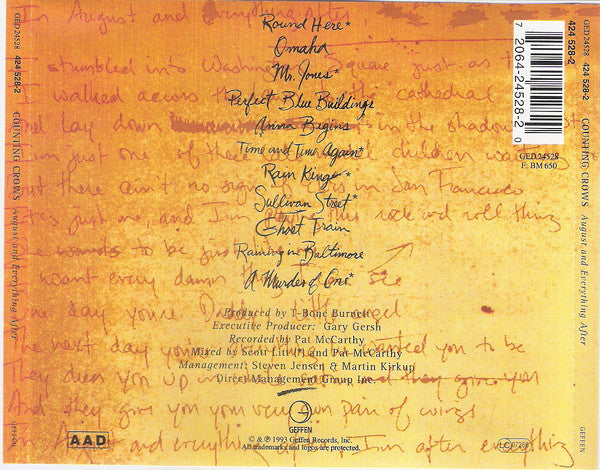 In August and Everything After
Round Here*
Omaha
Mr. Jones*
Perfect Blue Buildings
Anna Begins
Time and Time Again*
Rain King*
Sullivan Street*
Ghost Train
Raining in Baltimore
A Murder of One*
I stumbled into Square just as
I walked across the cathedral
lay down in the shadow
just one of these children
here ain't no sign in San Francisco
just me and I'm this rock and roll thing
to be just
want every damn thing see
one day you're
The next day you to be
They dress you up in and they give you
And they give you your very own pair of wings
In August and everything I'm after everything
Produced by T-Bone Burnett
Executive Producer: Gary Gersh
Recorded by Pat McCarthy
Mixed by Scott Litt(*) and Pat McCarthy
Management: Steven Jensen & Martin Kirkup
Direct Management Group Inc.
GEFFEN
© & ℗ 1993 Geffen Records, Inc.
All trademarks and logos are protected.
AAD
LC
GED 24528 424 528-2 COUNTING CROWS August and Everything After GEFFEN
7 2064-24528-2 0
GED 24528
F: BM 650
GED 24528 424 528-2 COUNTING CROWS August and Everything After GEFFEN